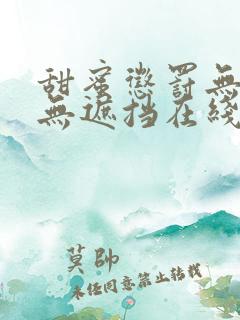 甜蜜懲罰無
無遮挡在綫
莫帥
未经同意禁止转载